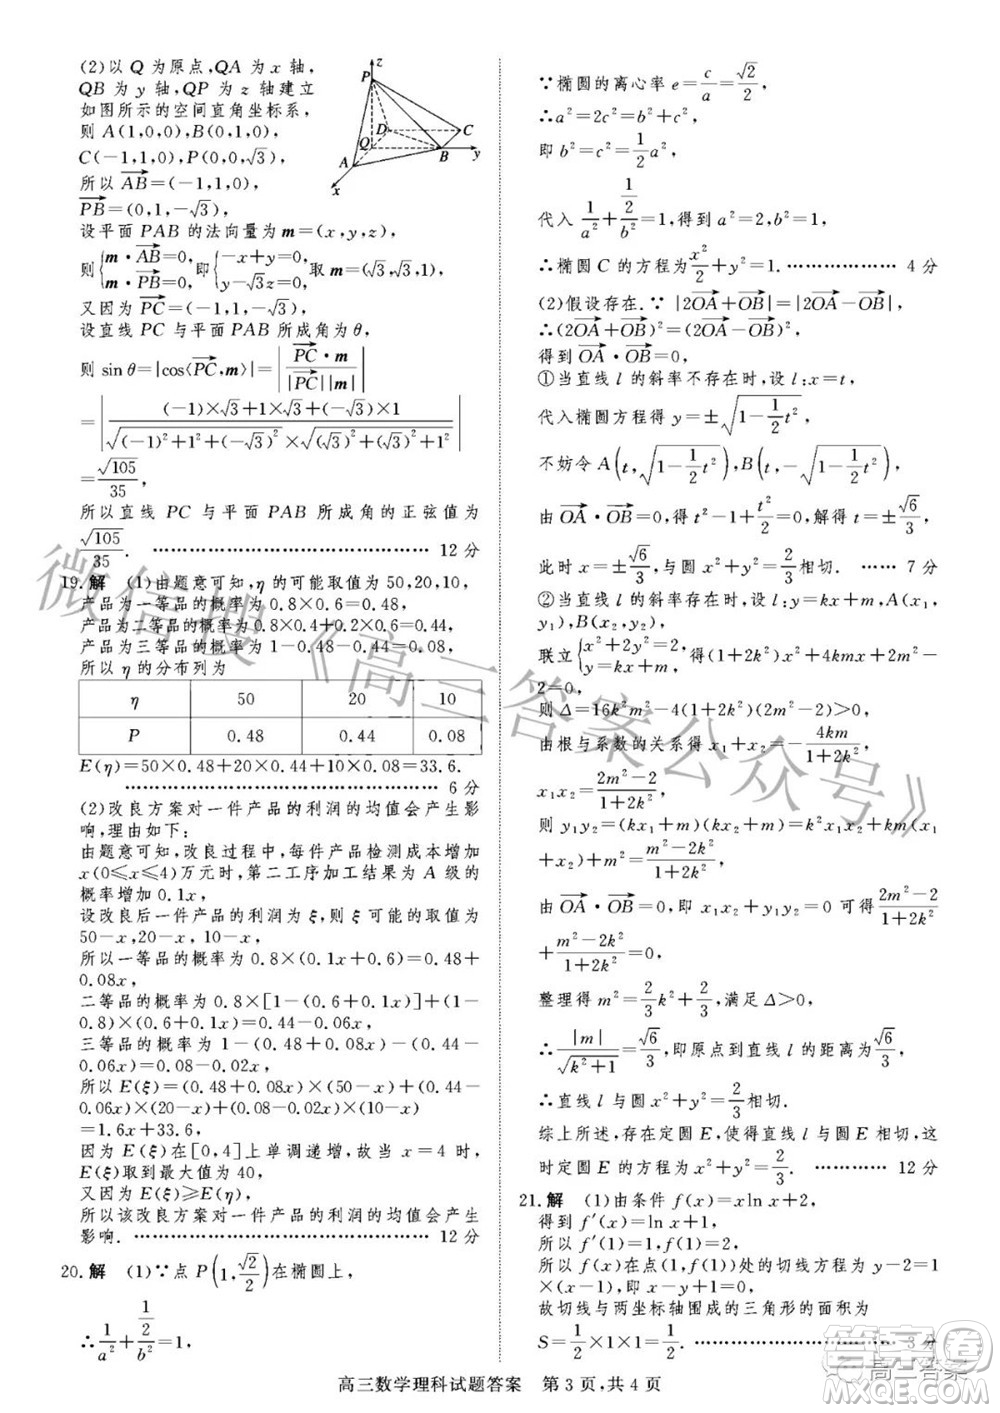 (2)以 Q 为原点,QA 为 x 轴,
QB 为 y 轴,QP 为 z 轴建立
如图所示的空间直角坐标系,
则 A(1,0,0),B(0,1,0),
C(-1,1,0),P(0,0,√3),
所以 AB=(-1,1,0),
PB=(0,1,-√3),
设平面 PAB 的法向量为 m=(x,y,z),
则{m·AB=0, m·PB=0,即{-x+y=0, y-√3z=0,取 m=(√3,√3,1),
又因为 PC=(-1,1,-√3),
设直线 PC 与平面 PAB 所成角为 θ,
则 sin θ=|cos⟨PC,m⟩|=|PC·m/|PC||m||
=|((-1)×√3+1×√3+(-√3)×1)/(√((-1)²+1²+(-√3)²)×√((√3)²+(√3)²+1²))|
=√105/35,
所以直线 PC 与平面 PAB 所成角的正弦值为
√105/35. ………………………… 12 分
19.解 (1)由题意可知,η 的可能取值为 50,20,10,
产品为一等品的概率为 0.8×0.6=0.48,
产品为二等品的概率为 0.8×0.4+0.2×0.6=0.44,
产品为三等品的概率为 1-0.48-0.44=0.08,
所以 η 的分布列为
η 50 20 10
P 0.48 0.44 0.08
E(η)=50×0.48+20×0.44+10×0.08=33.6.
………………………… 6 分
(2)改良方案对一件产品的利润的均值会产生影
响,理由如下:
由题意可知,改良过程中,每件产品检测成本增加
x(0≤x≤4)万元时,第二工序加工结果为 A 级的
概率增加 0.1x,
设改良后一件产品的利润为 ξ,则 ξ 可能的取值为
50-x,20-x,10-x,
所以一等品的概率为 0.8×(0.1x+0.6)=0.48+
0.08x,
二等品的概率为 0.8×[1-(0.1x+0.6)]+(1-
0.8)×(0.1x+0.6)=0.44-0.06x,
三等品的概率为 1-(0.48+0.08x)-(0.44-
0.06x)=0.08-0.02x,
所以 E(ξ)=(0.48+0.08x)×(50-x)+(0.44-
0.06x)×(20-x)+(0.08-0.02x)×(10-x)
=1.6x+33.6,
因为 E(ξ)在[0,4]上单调递增,故当 x=4 时,
E(ξ)取到最大值为 40,
又因为 E(ξ)≥E(η),
所以该改良方案对一件产品的利润的均值会产生
影响. ………………………… 12 分
20.解 (1)∵点 P(1,√2/2)在椭圆上,
∴1/a²+(1/2)/b²=1,
z
P
D
C
Q
B
y
A
x
∵椭圆的离心率 e=c/a=√2/2,
∴a²=2c²=b²+c²,
即 b²=c²=1/2a²,
代入 1/a²+(1/2)/b²=1,得到 a²=2,b²=1,
∴椭圆 C 的方程为x²/2+y²=1. ……………… 4 分
(2)假设存在.∵|2OA+OB|=|2OA-OB|,
∴(2OA+OB)²=(2OA-OB)²,
得到 OA·OB=0,
①当直线 l 的斜率不存在时,设 l:x=t,
代入椭圆方程得 y=±√(1-1/2t²),
不妨令 A(t,√(1-1/2t²)),B(t,-√(1-1/2t²)),
由 OA·OB=0,得 t²-1+t²/2=0,解得 t=±√6/3,
此时 x=±√6/3,与圆 x²+y²=2/3相切. …… 7 分
②当直线 l 的斜率存在时,设 l:y=kx+m,A(x₁,
y₁),B(x₂,y₂),
联立{x²+2y²=2, y=kx+m,得(1+2k²)x²+4kmx+2m²-
2=0,
则 Δ=16k²m²-4(1+2k²)(2m²-2)>0,
由根与系数的关系得 x₁+x₂=-4km/(1+2k²),
x₁x₂=(2m²-2)/(1+2k²),
则 y₁y₂=(kx₁+m)(kx₂+m)=k²x₁x₂+km(x₁
+x₂)+m²=(m²-2k²)/(1+2k²),
由 OA·OB=0,即 x₁x₂+y₁y₂=0 可得(2m²-2)/(1+2k²)
+(m²-2k²)/(1+2k²)=0,
整理得 m²=2/3k²+2/3,满足 Δ>0,
∴|m|/√(k²+1)=√6/3,即原点到直线 l 的距离为√6/3,
∴直线 l 与圆 x²+y²=2/3相切.
综上所述,存在定圆 E,使得直线 l 与圆 E 相切,这
时定圆 E 的方程为 x²+y²=2/3. ………… 12 分
21.解 (1)由条件 f(x)=xln x+2,
得到 f′(x)=ln x+1,
所以 f′(1)=1,f(1)=2,
所以 f(x)在点(1,f(1))处的切线方程为 y-2=1
×(x-1),即 x-y+1=0,
故切线与两坐标轴围成的三角形的面积为
S=1/2×1×1=1/2. ……………… 3 分
高三数学理科试题答案 第 3 页,共 4 页
微信搜《高三答案公众号》
答案卷
高三答案